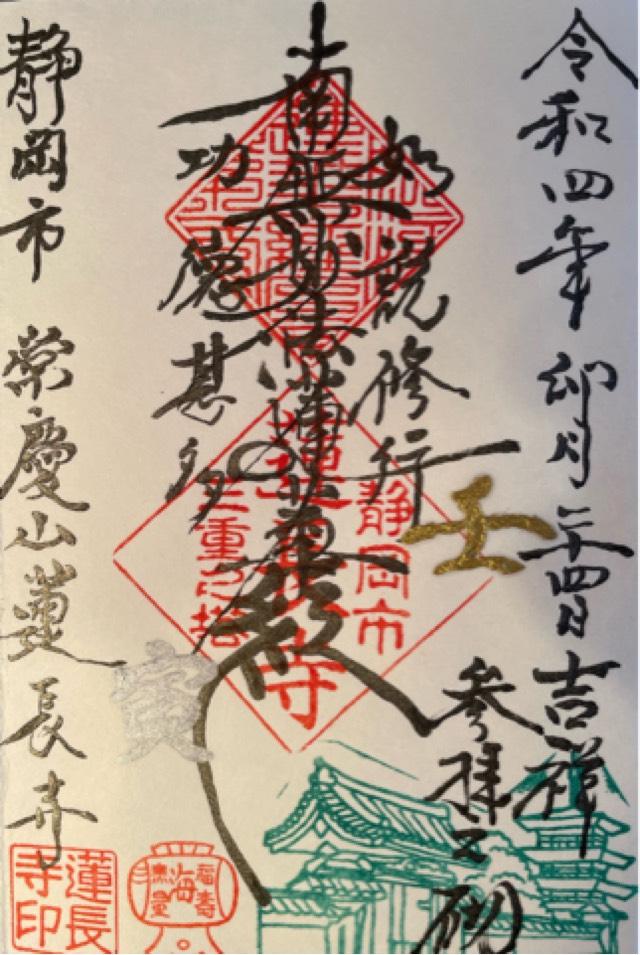 令和四年卯月二十四日吉祥
参拝之砌
壬
如説修行
南無妙法蓮華経
功徳甚多
寅
静岡市 栄慶山蓮長寺
静岡市
蓮長寺
三重之塔
福寿
海
無量
蓮長
寺印